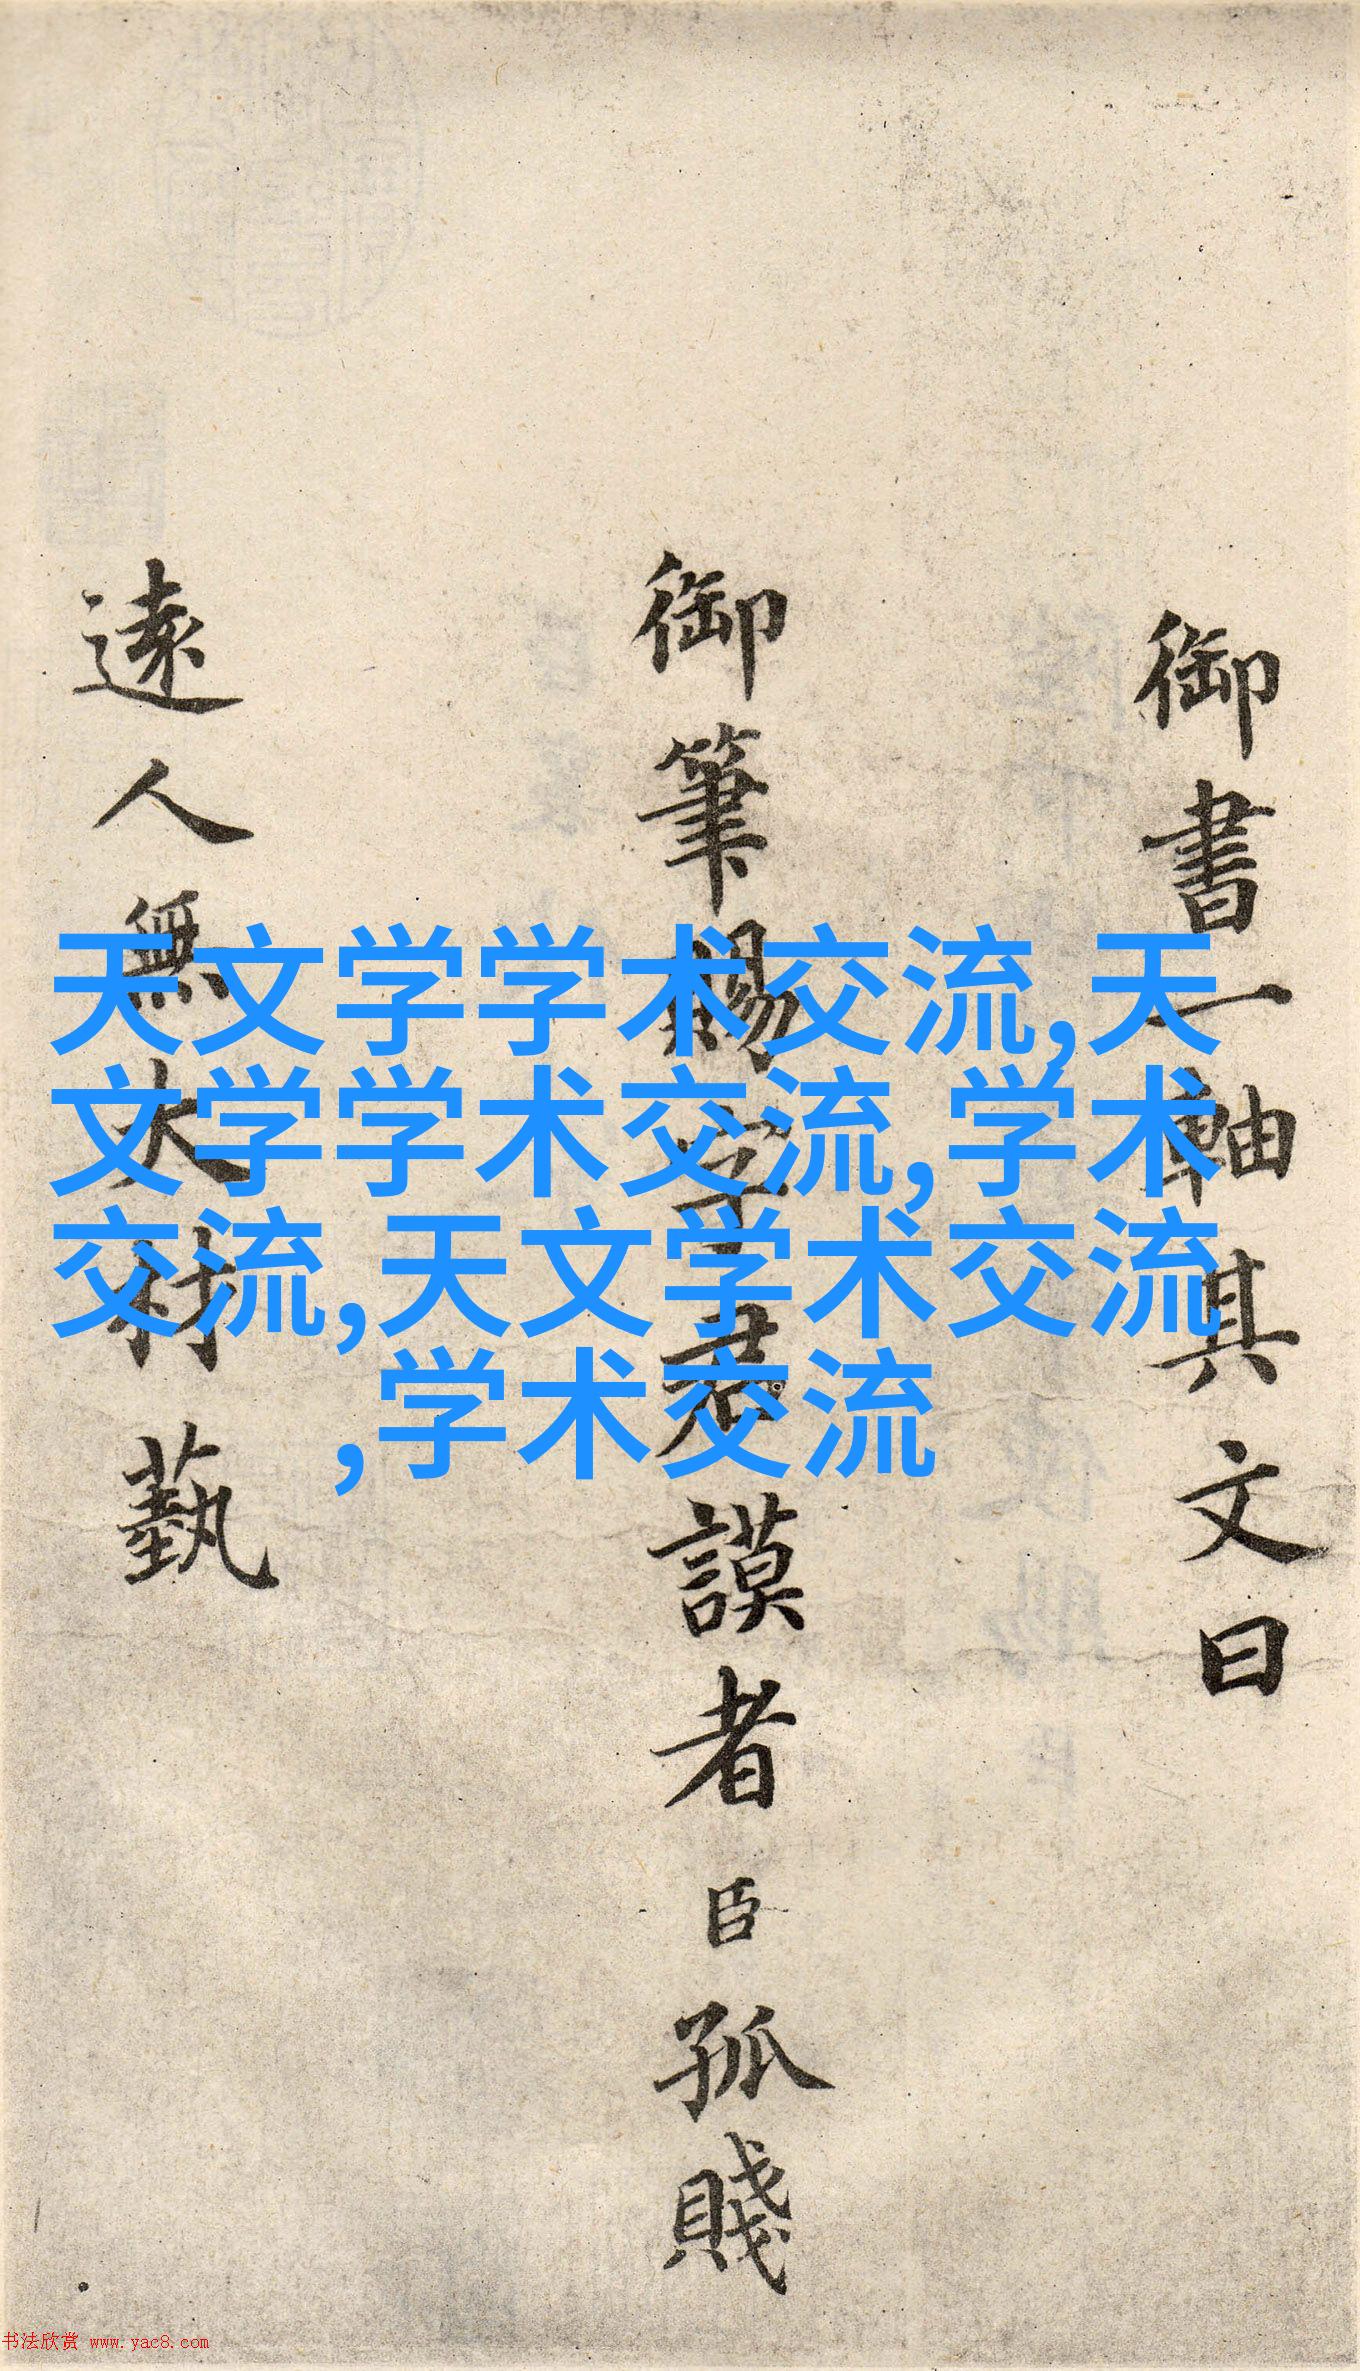 御書一軸其文曰
御筆賜字君謨者臣孤賤
遠人無大材藝
天文学学术交流,天
文学学术交流,学术
交流,天文学术交流
,学术交流
书法欣赏 www.yac8.com